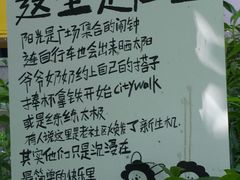 这里是
阳光是广场集合的闹钟
连自行车也会出来晒太阳
爷爷奶奶约上自己的搭子
捧杯拿铁开始citywalk
或是约约太极
有人说这里是老社区焕发了新生机
其实他们只是沉浸在
最简单的快乐里